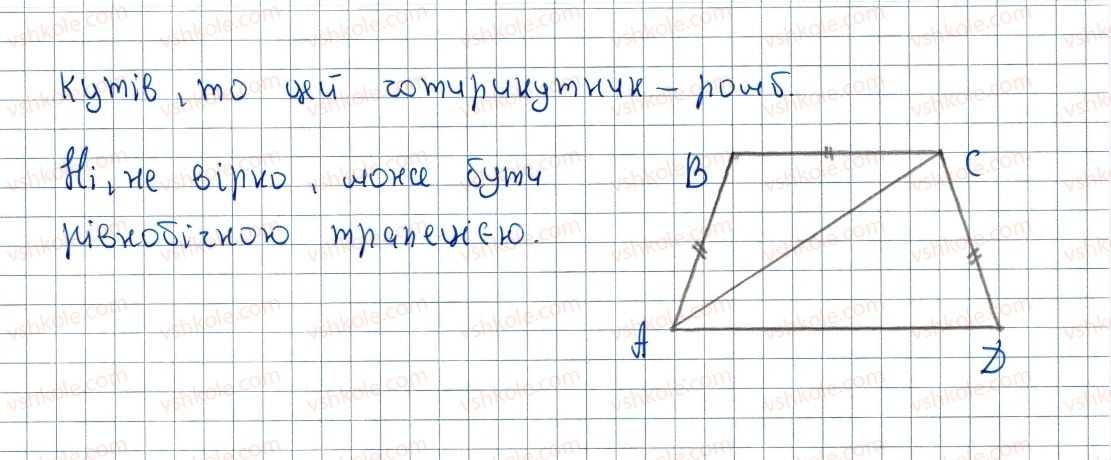 кутів, то цей чотирикутник – ромб.
Ні, не вірно, може бути
рівнобічною трапецією.
B
C
A
D
vshkole.com